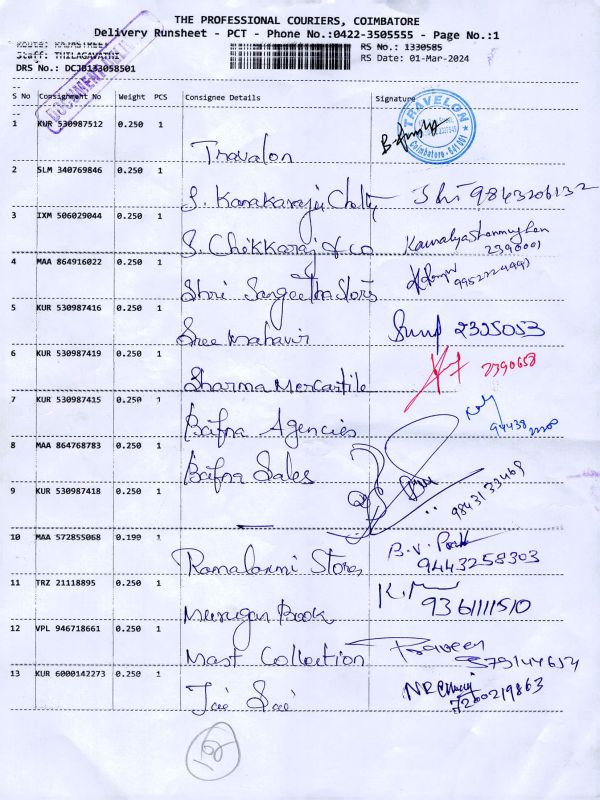 THE PROFESSIONAL COURIERS, COIMBATORE
Delivery Runsheet - PCT - Phone No.:0422-3505555 - Page No.:1
Route: RAJASTREET
RS No.: 1330585
Staff: THILAGAVATHI
RS Date: 01-Mar-2024
DRS No.: DCJB133058501
S No Consignment No Weight PCS Consignee Details Signature
TRAVELON
Coimbatore - 641 001
1 KUR 530987512 0.250 1 Travalon
2 SLM 340769846 0.250 1 S. Kanakaraju Chetty 9843206132
3 IXM 506029044 0.250 1 S. Chikkaraj & co Kausalya Shanmughan
2390001
4 MAA 864916022 0.250 1 Shri Sangeetha Stores
5 KUR 530987416 0.250 1 Sree Mahavir 2325053
6 KUR 530987419 0.250 1 Sharma Mercantile 2390658
7 KUR 530987415 0.250 1 Bafna Agencies
8 MAA 864768783 0.250 1 Bafna Sales
9 KUR 530987418 0.250 1 9843133468
10 MAA 572855068 0.199 1 Ramalaxmi Stores B.V.
9443258303
11 TRZ 21118895 0.250 1 Murugan Book K.
9361111510
12 VPL 946718661 0.250 1 Mast Collection Praveen
13 KUR 6000142273 0.250 1 Jai Sai
7200219863